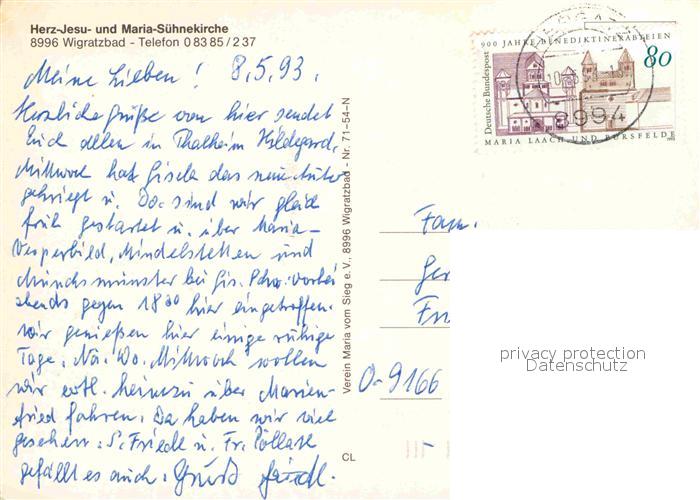 Herz-Jesu- und Maria-Sühnekirche
8996 Wigratzbad - Telefon 0 83 85 / 2 37
Meine Lieben! 8.5.93.
Herzliche Grüße von hier sendet
Euch allen in Thalheim Hildegard,
Mittwoch hat Gisela das neue Auto
gekriegt u. Do. sind wir gleich
früh gestartet u. über Maria-
Vesperbild, Mindelstetten und
Münchsmünster bei Gis. vorbei
abends gegen 18⁰⁰ hier eingetroffen.
Wir genießen hier einige ruhige
Tage. Nä. Wo. Mittwoch wollen
wir evtl. heimzu über Marien-
fried fahren. Da haben wir viel
gesehen. S. Friedl u. Fr. Pollack
gefällt es auch. Gruß
Verein Maria vom Sieg e.V., 8996 Wigratzbad - Nr. 71-54-N
CL
Deutsche Bundespost
900 JAHRE BENEDIKTINERABTEIEN
80
MARIA LAACH UND BURSFELDE
8994
Fam.
O-9166
privacy protection
Datenschutz